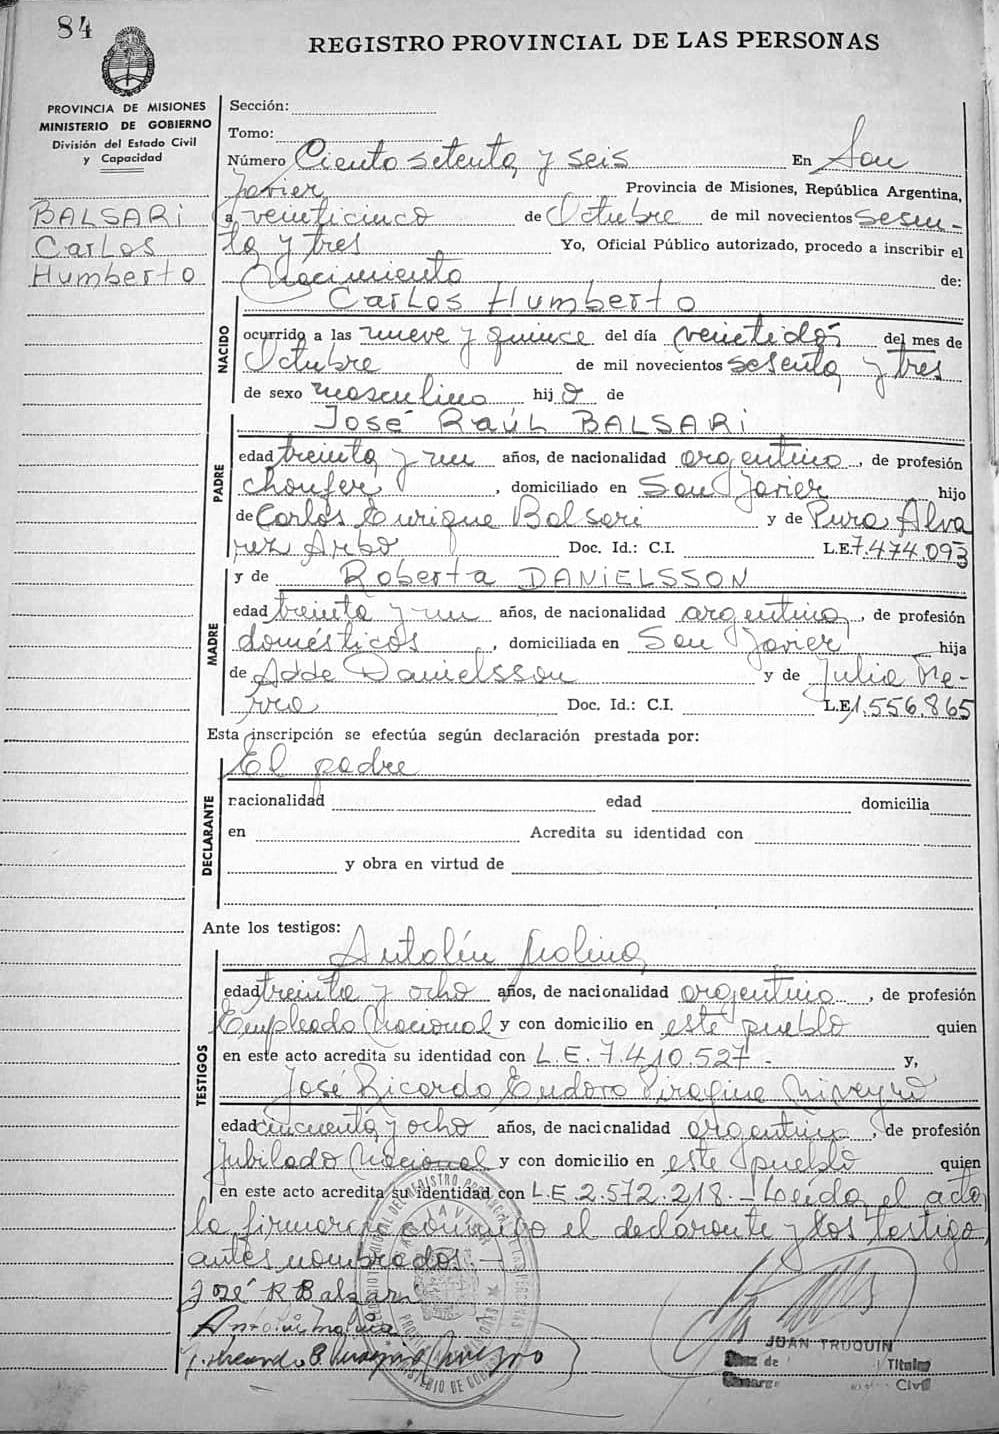 84
REGISTRO PROVINCIAL DE LAS PERSONAS
PROVINCIA DE MISIONES
MINISTERIO DE GOBIERNO
División del Estado Civil
y Capacidad
BALSARI
Carlos
Humberto
Sección:
Tomo:
Número Ciento setenta y seis En San
Javier Provincia de Misiones, República Argentina,
a veinticinco de Octubre de mil novecientos sesen-
ta y tres Yo, Oficial Público autorizado, procedo a inscribir el
Nacimiento de:
NACIDO
Carlos Humberto
ocurrido a las nueve y quince del día veintidós del mes de
Octubre de mil novecientos sesenta y tres
de sexo masculino hijo de
PADRE
José Raúl BALSARI
edad treinta y un años, de nacionalidad argentino, de profesión
choufer, domiciliado en San Javier hijo
de Carlos Enrique Balsari y de Pura Alva
rez Arbó Doc. Id.: C.I. L.E. 7.474.093
y de Roberta DANIELSSON
MADRE
edad treinta y un años, de nacionalidad argentina, de profesión
domésticos, domiciliada en San Javier hija
de Adde Danielsson y de Julia
Doc. Id.: C.I. L.E. 1.556.865
Esta inscripción se efectúa según declaración prestada por:
El padre
DECLARANTE
nacionalidad edad domicilia
en Acredita su identidad con
y obra en virtud de
Ante los testigos:
TESTIGOS
Antolín Molina
edad treinta y ocho años, de nacionalidad argentino, de profesión
Empleado Nacional y con domicilio en este pueblo quien
en este acto acredita su identidad con L.E. 7.410.527 - y,
José Ricardo Eudoro Piragine Niveyro
edad cincuenta y ocho años, de nacionalidad argentino, de profesión
Jubilado Nacional y con domicilio en este pueblo quien
en este acto acredita su identidad con L.E. 2.572.218.- Leída el acta
la firmaron conmigo el declarante y los testigo
antes nombrados.-
José R Balsari
Antolín Molina
JUAN TRUQUIN
Juez de Titular
Civil